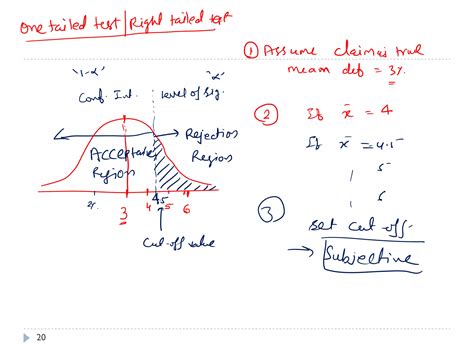 One tailed test | Right tailed test
① Assume claim is true
mean def = 3%
"1-α" "α"
Conf. Int. level of sig.
② If x̄ = 4
If x̄ = 4.5
5
6
Rejection
Region
Acceptance
Region
3 4 4.5 5 6
Cut-off value
③
set cut off
→ Subjective
20